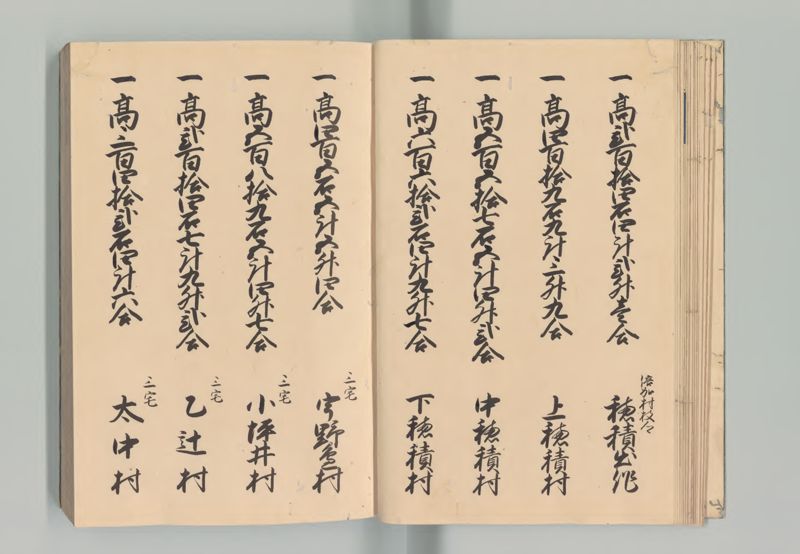 一髙弐百拾四石四斗弐升壱合
倍加村枝
穂積出作
一髙四百拾九石九斗三升九合 上穂積村
一髙五百五拾七石五斗四升弐合 中穂積村
一髙六百六拾弐石四斗九升七合 下穂積村
一髙四百五石五斗五升四合
三宅
宇野辺村
一髙五百八拾九石五斗四升七合
三宅
小坪井村
一髙弐百拾四石七斗九升弐合
三宅
乙辻村
一髙三百四拾弐石四斗六合
三宅
太中村